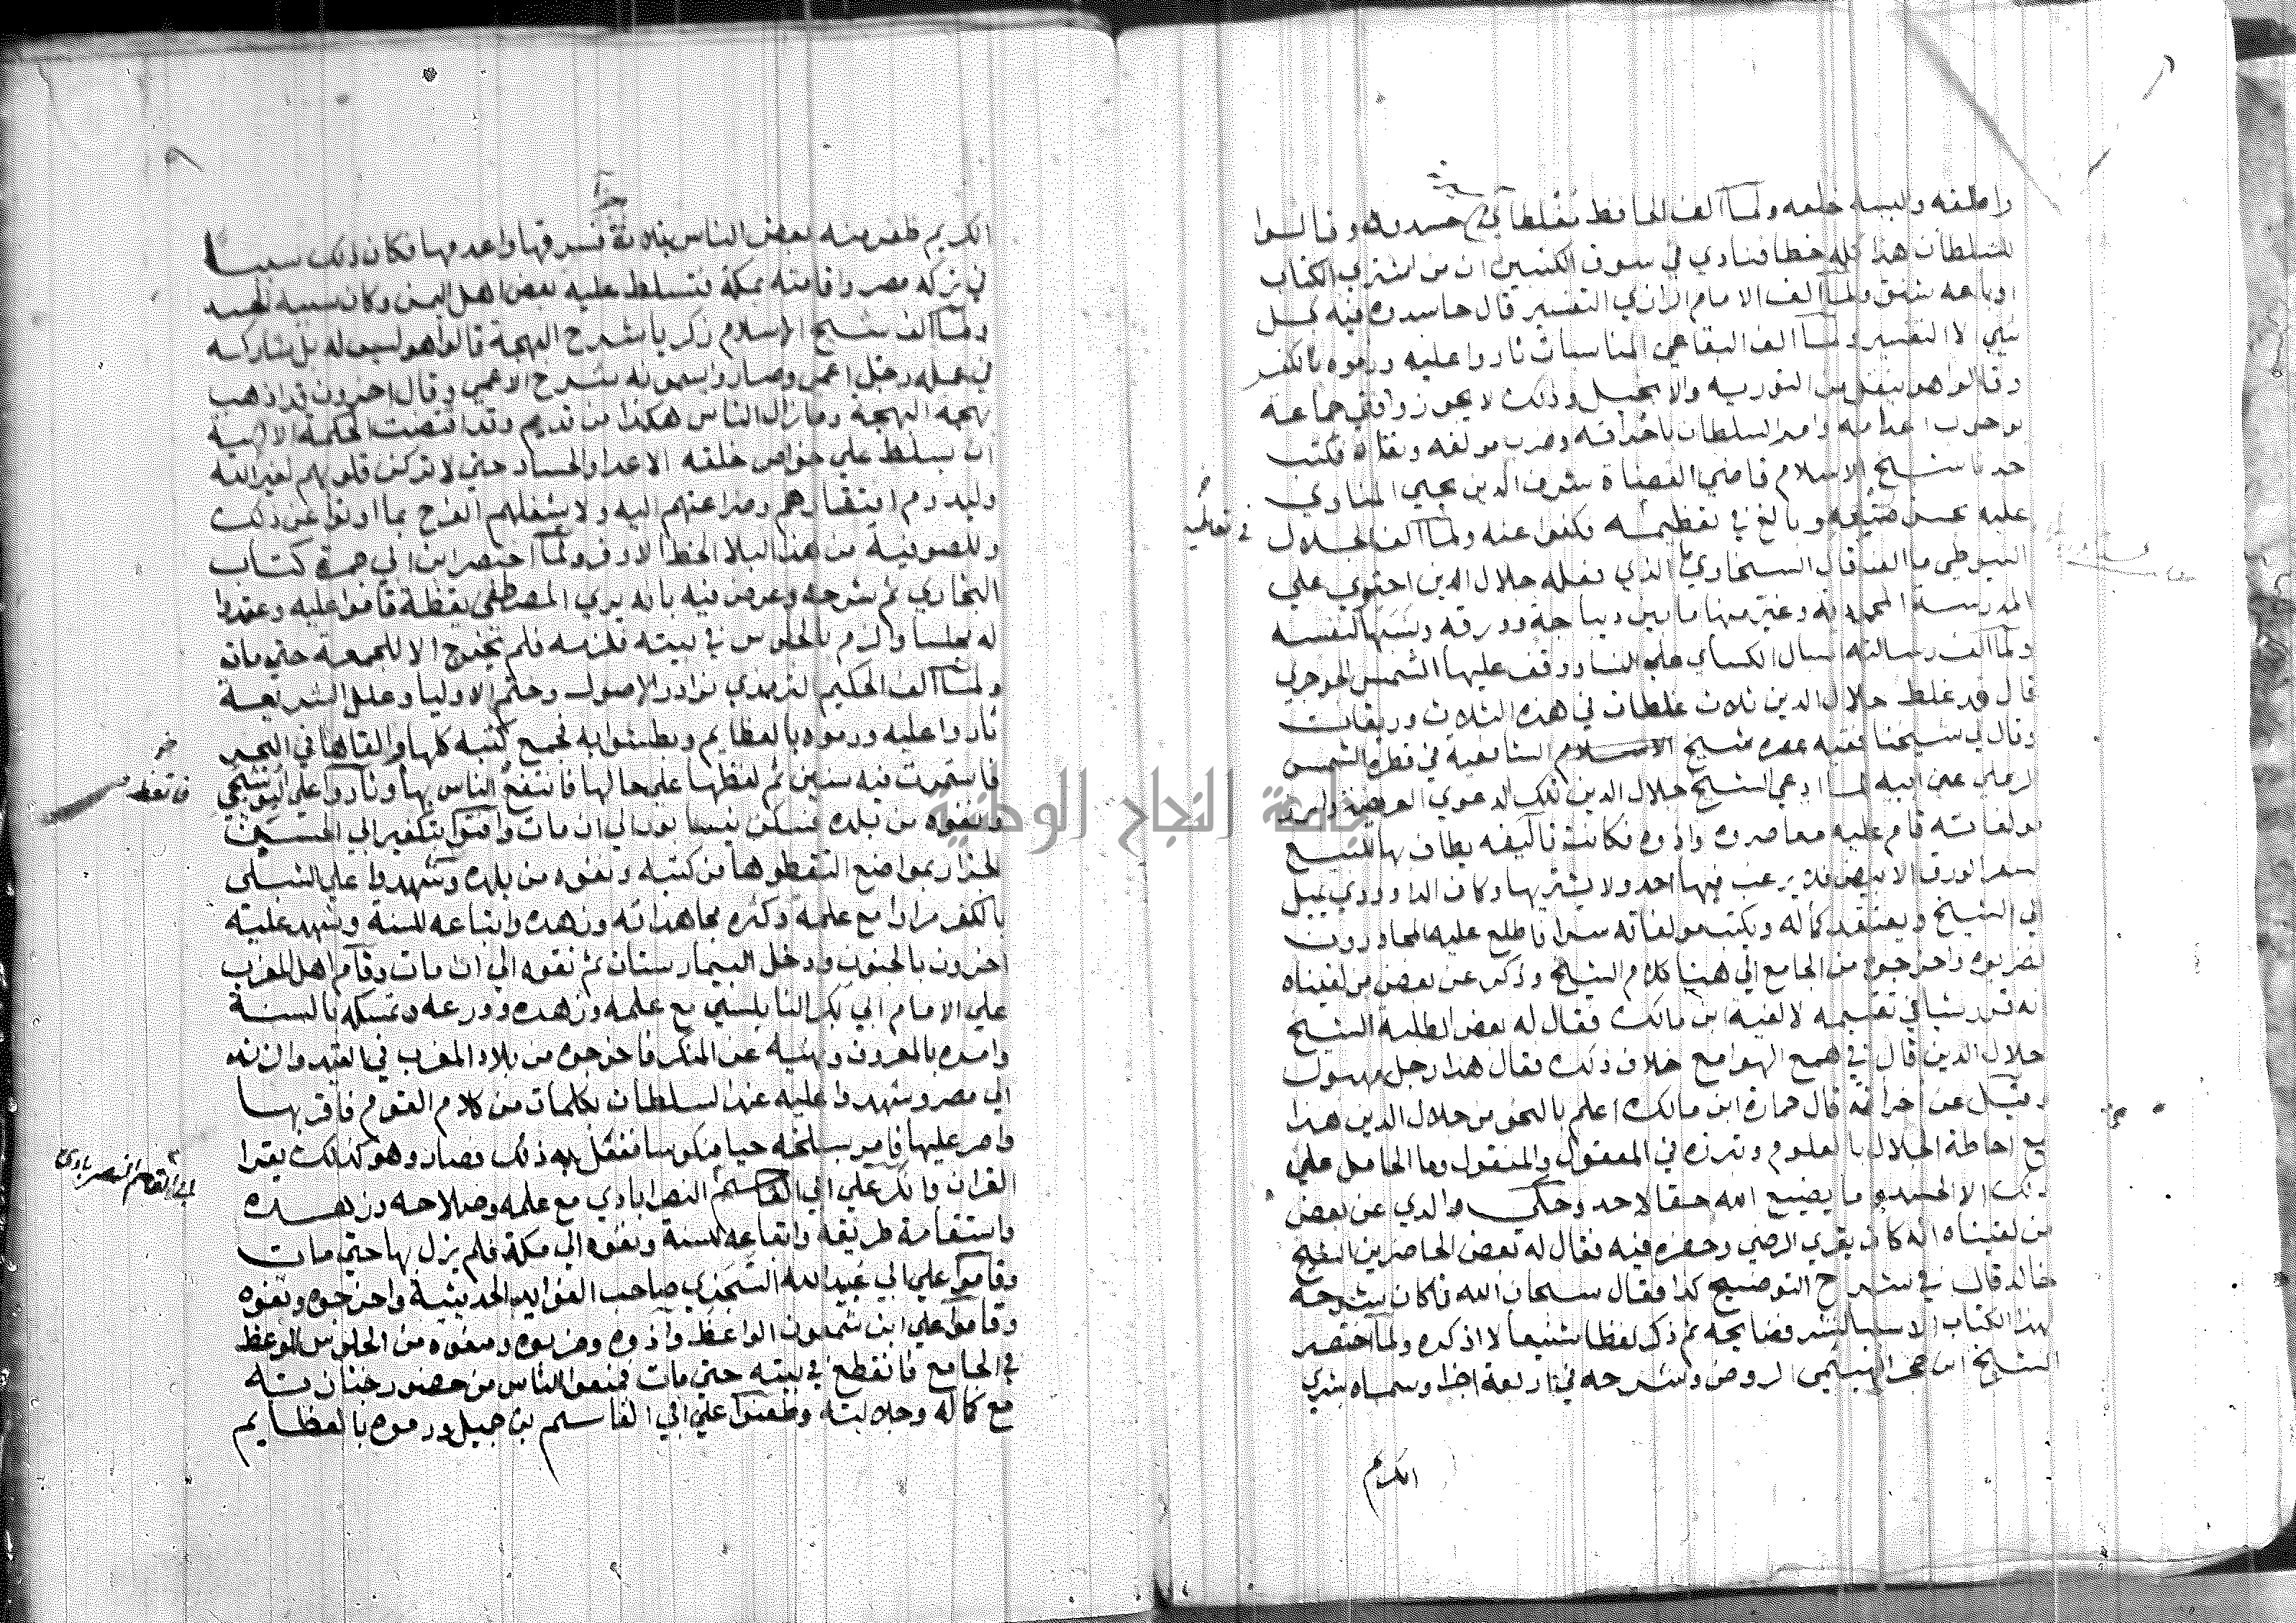 واطلقه والبسه خلعه ولما الف الحافظ مغلطاي حسدوه وقالوا
للسلطان هذا كله خطا فنادي في سوق الكتبيين ان من اشتري الكتاب
اوباعه شنق ولما الف الامام الرازي التفسير قال حاسدوه فيه كل
شي الا التفسير ولما الف البقاعي المناسبات ثاروا عليه ورموه بالكفر
وقالوا هو ينقل من التوريه والانجيل وذلك لا يجوز وافتي جماعة
بوجوب اعدامه وامر السلطان باحراقه وضرب مولفه ونفاه فكتب
جدنا شيخ الاسلام قاضي القضاة شرف الدين يحيي المناوي
عليه بحسن صنيعه وبالغ في تعظيمه فكفوا عنه ولما الف الجلال
السيوطي ما الف قال السخاوي الذي فعله جلال الدين احتوي علي
المدرسة المحمودية وغير منها ما بين ديباجة وورقه ونسبها لنفسه
ولما الف رسالته اسبال الكساي علي النسا ووقف عليها الشمس الجوجري
قال قد غلط جلال الدين ثلاث غلطات في هذه الثلاث وريقات
وقال لي شيخنا فقيه عصره شيخ الاسلام الشافعيه في قطره الشمس
الرملي عن ابيه لما ادعي الشيخ جلال الدين تلك الدعوي العريضة وابرز
مولفاته قام عليه معاصروه واذوه فكانت تآليفه يطاف بها للبيع
بسعر الورق الابيض فلا يرغب فيها احد ولا يشتريها وكان الداوودي يميل
الي الشيخ ويعتقد كماله ويكتب مولفاته سرا فاطلع عليه المجاورون
فضربوه واخرجوه من الجامع الي هنا كلام الشيخ وذكر عن بعض من لقيناه
انه قرر شيا في تقسيمه لالفية ابن مالك فقال له بعض الطلبة الشيخ
جلال الدين قال في همع الهوامع خلاف ذلك فقال هذا رجل مهبول
ونقل عن اخر انه قال حمارة ابن مالك اعلم بالنحو من جلال الدين هذا
مع احاطة الجلال بالعلوم وتبرزه في المعقول والمنقول وما الحامل علي
ذلك الا الحسد وما يضيع الله حقا لاحد وحكي والدي عن بعض
من لقيناه انه كان يقري الرضي وحضره فيه فقال له بعض الحاضرين الشيخ
خالد قال في شرح التوضيح كذا فقال سبحان الله فاكان يشرحه
لهذا الكتاب الا سببا لنشر فضايحه ثم ذكر لفظا شنيعا لا اذكره ولما اختصر
الشيخ ابن حجر الهيتمي الروض وشرحه في اربعة اجزا وسماه بشري
الكريم
في تعليه
الكريم ظفر منه بعض الناس فسرقها واعدمها فكان ذلك سببا
في تركه مصر واقامته بمكة فتسلط عليه بعض اهل اليمن وكان سببه الحسد
ولما الف شيخ الاسلام زكريا شرح البهجة قالوا هو ليس له بل يشاركه
في عمله رجل اعمي وصاروا يسمونه شرح الاعمي وقال اخرون قد اذهب
بهجة البهجة ومازال الناس هكذا من قديم وقد اقتضت الحكمة الالهية
ان يسلط علي خواص خلقه الاعدا والحساد حتي لا تركن قلوبهم لغير الله
وليدوم افتقارهم وضراعتهم اليه ولا يشغلهم الفرح بما اوتوا عن ذلك
وللصوفية من هذا البلا الحظ الاوفر ولما اختصر ابن ابي جمرة كتاب
البخاري ثم شرحه وعرض فيه بانه يري المصطفي يقظة قاموا عليه وعقدوا
له مجلسا والزم بالجلوس في بيته فلزمه فلم يخرج الا للجمعة حتي مات
ولما الف الحكيم الترمذي نوادر الاصول وختم الاوليا وعلل الشريعة
ثاروا عليه ورموه بالعظايم وبطشوا به فجمع كتبه كلها والقاها في البحر
فاستمرت فيه سنين ثم لفظها علي حالها فانتفع الناس بها وثاروا علي البوشنجي
ونفوه من بلده فسكن نيسابور الي ان مات وافتوا بتكفير ابي الحسين
الجزار بمواضع التقطوها من كتبه ونفوه من بلده وشهدوا علي الشبلي
بالكفر مرارا مع علمه وكثرة مجاهداته وزهده واتباعه للسنة وشهد عليه
اخرون بالجنون ودخل البيمارستان ثم نفوه الي ان مات وقام اهل المغرب
علي الامام ابي بكر النابلسي مع علمه وزهده وورعه وتمسكه بالسنة
وامره بالمعروف ونهيه عن المنكر فاخرجوه من بلاد المغرب في القيد
الي مصر وشهدوا عليه عند السلطان بكلمات من كلام القوم فاقر بها
واصر عليها فامر بسلخه حيا منكوسا ففعل به ذلك فصار وهو كذلك يقرا
القران وانكر علي ابي القاسم النصرابادي مع علمه وصلاحه وزهده
واستقامة طريقه واتباعه للسنة ونفوه الي مكة فلم يزل بها حتي مات
وقاموا علي ابي عبد الله السجزي صاحب الفوايد الحديثية واخرجوه ونفوه
وقاموا علي ابن شمعون الواعظ وآذوه وضربوه ومنعوه من الجلوس للوعظ
في الجامع فانقطع في بيته حتي مات فمنعوا الناس من حضور جنازته
مع كماله وجلالته وطعنوا علي ابي القاسم بن جميل ورموه بالعظايم
فاتعظ
ابي القاسم النصرابادي
جامعة النجاح الوطنية